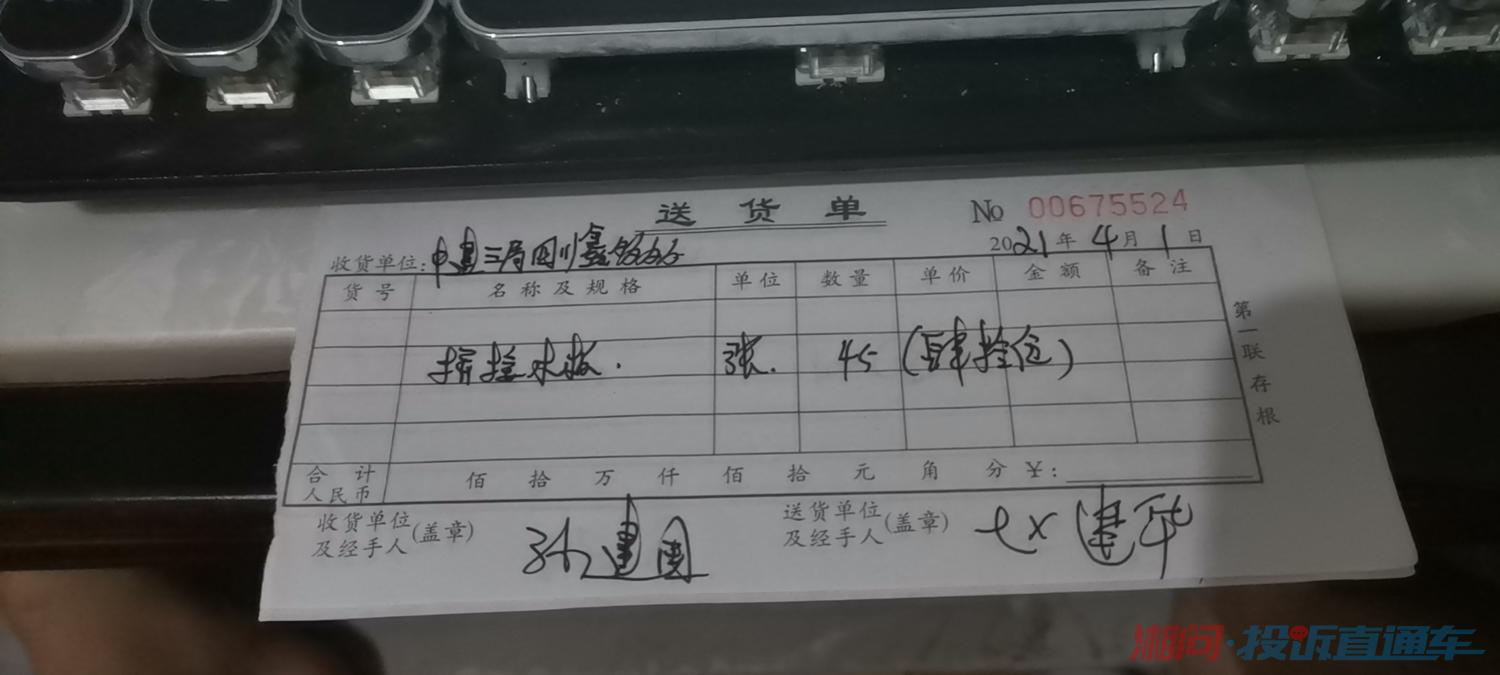 送货单 No 00675524
收货单位: 中建三局四川鑫 2021年4月1日
货号 名称及规格 单位 数量 单价 金额 备注
木板. 张. 45 (肆拾伍)
合计人民币 佰 拾 万 仟 佰 拾 元 角 分 ¥:
收货单位及经手人(盖章) 孙建国 送货单位及经手人(盖章) 建华
第一联存根
湘问·投诉直通车